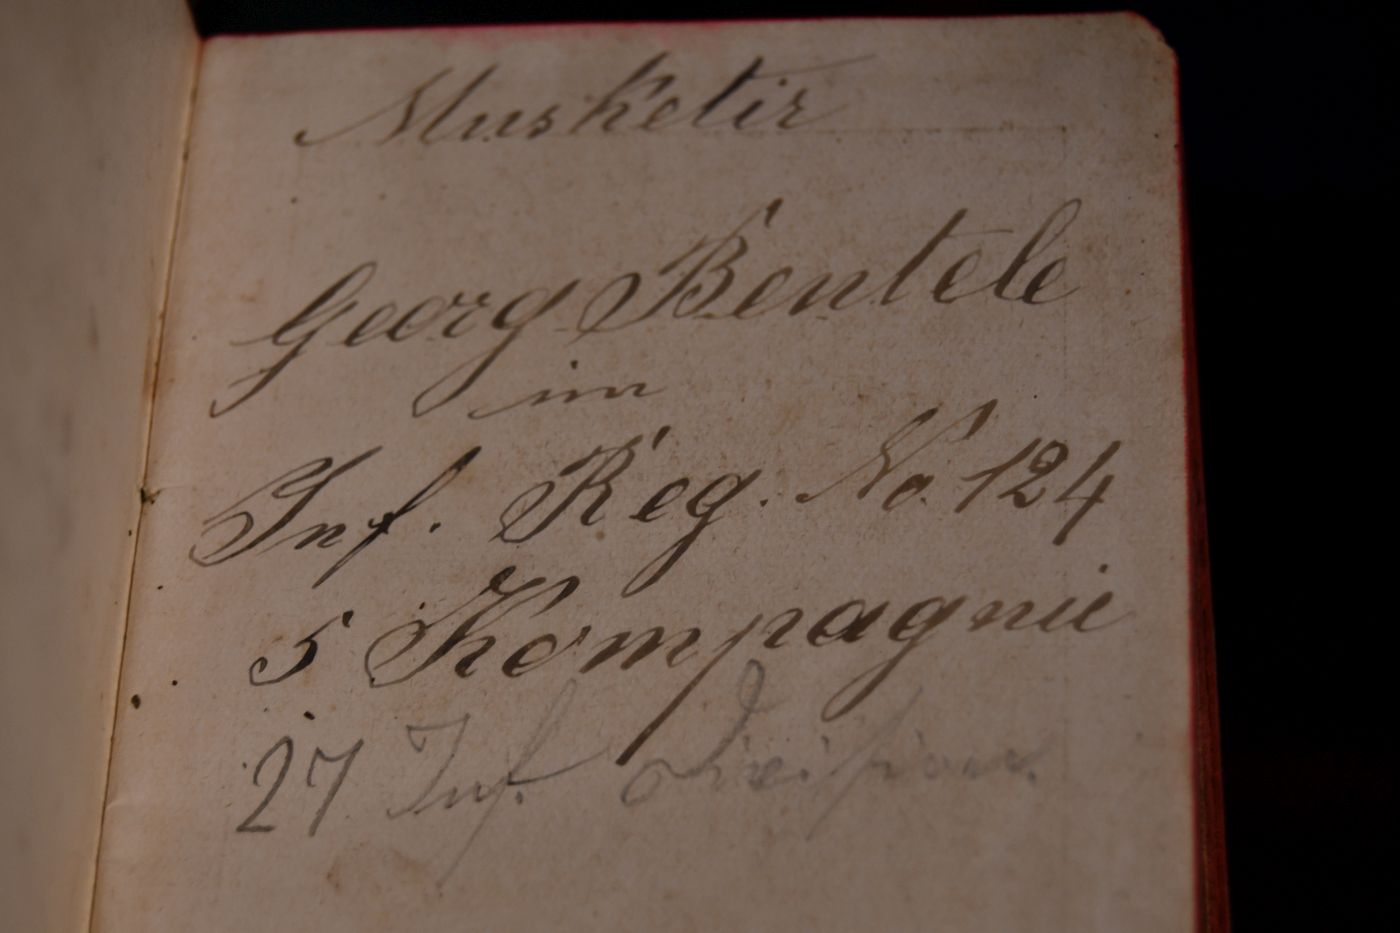 Musketir
Georg Bentele
im
Inf. Reg. No. 124
5 Kompagnie
27 Inf. Division.